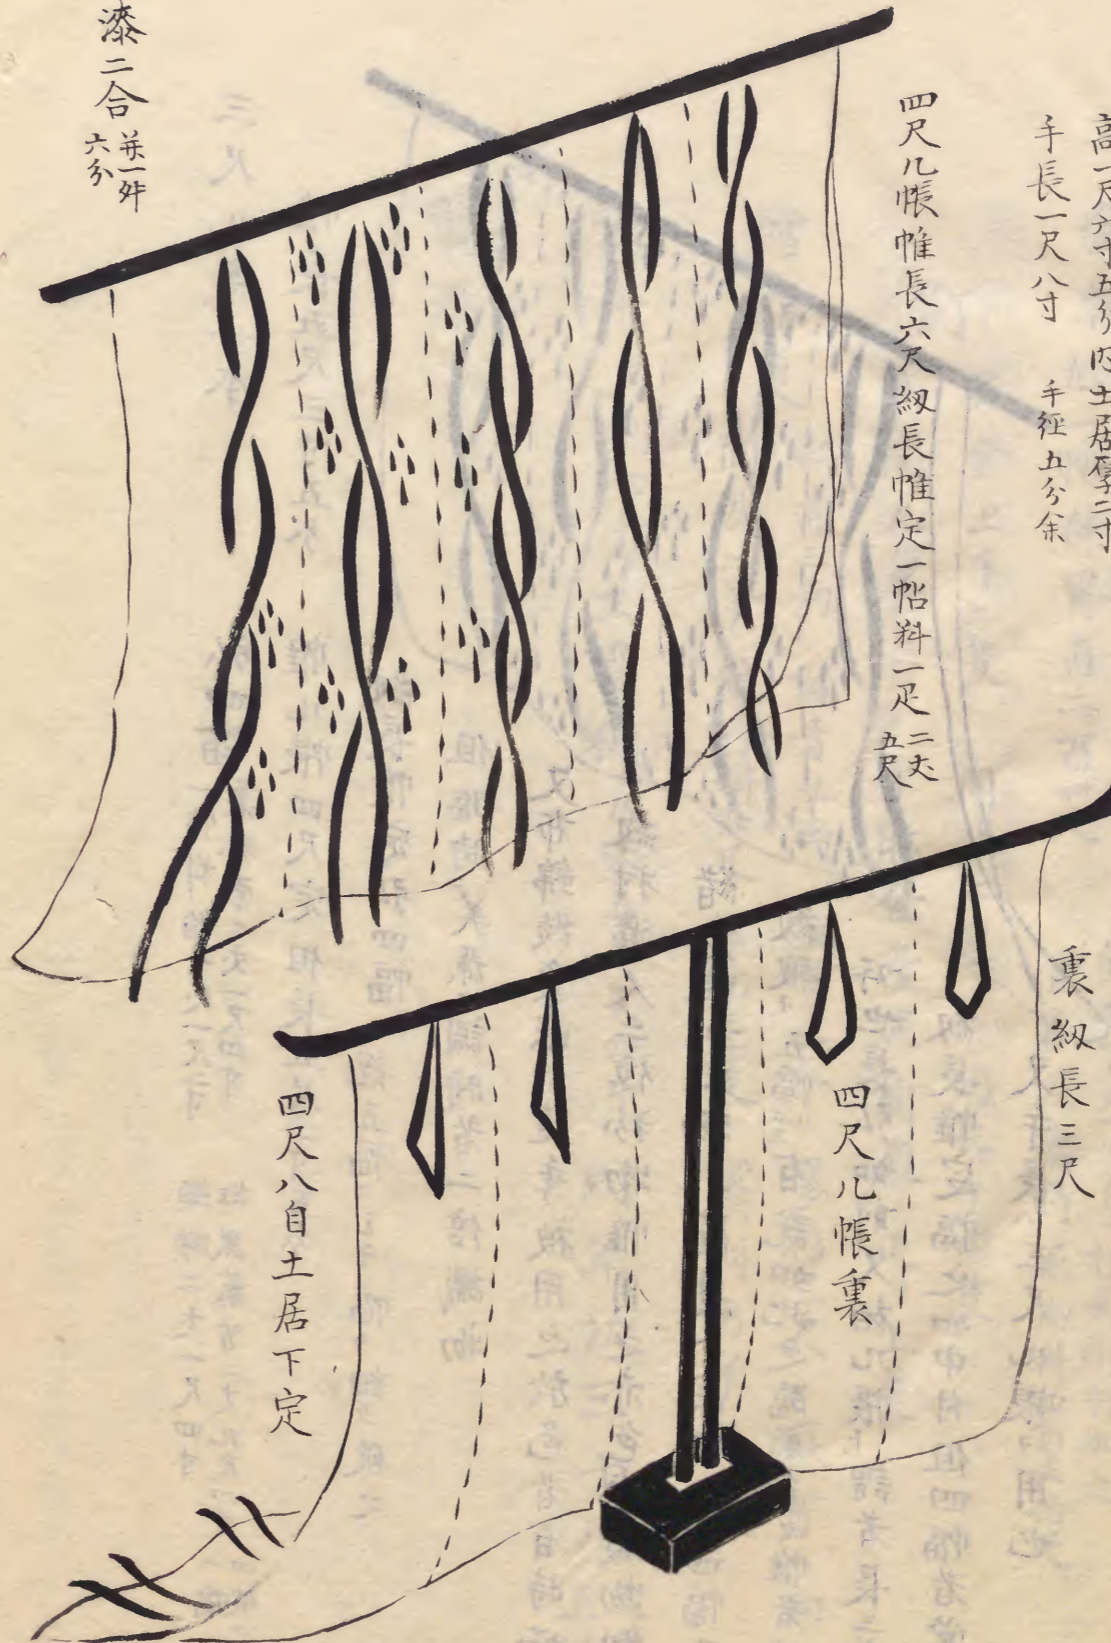 高一尺六寸五分内土居厚二寸
手長一尺八寸　手徑五分余
四尺几帳帷長六尺紉長帷定一帖料一疋二丈
五尺
漆二合并一舛
六分
裏紉長三尺
四尺几帳裏
四尺八自土居下定